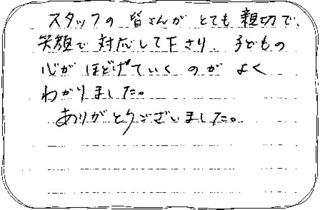 スタッフの皆さんがとても親切で、
笑顔で対応して下さり、子どもの
心がほどけていくのがよく
わかりました。
ありがとうございました。